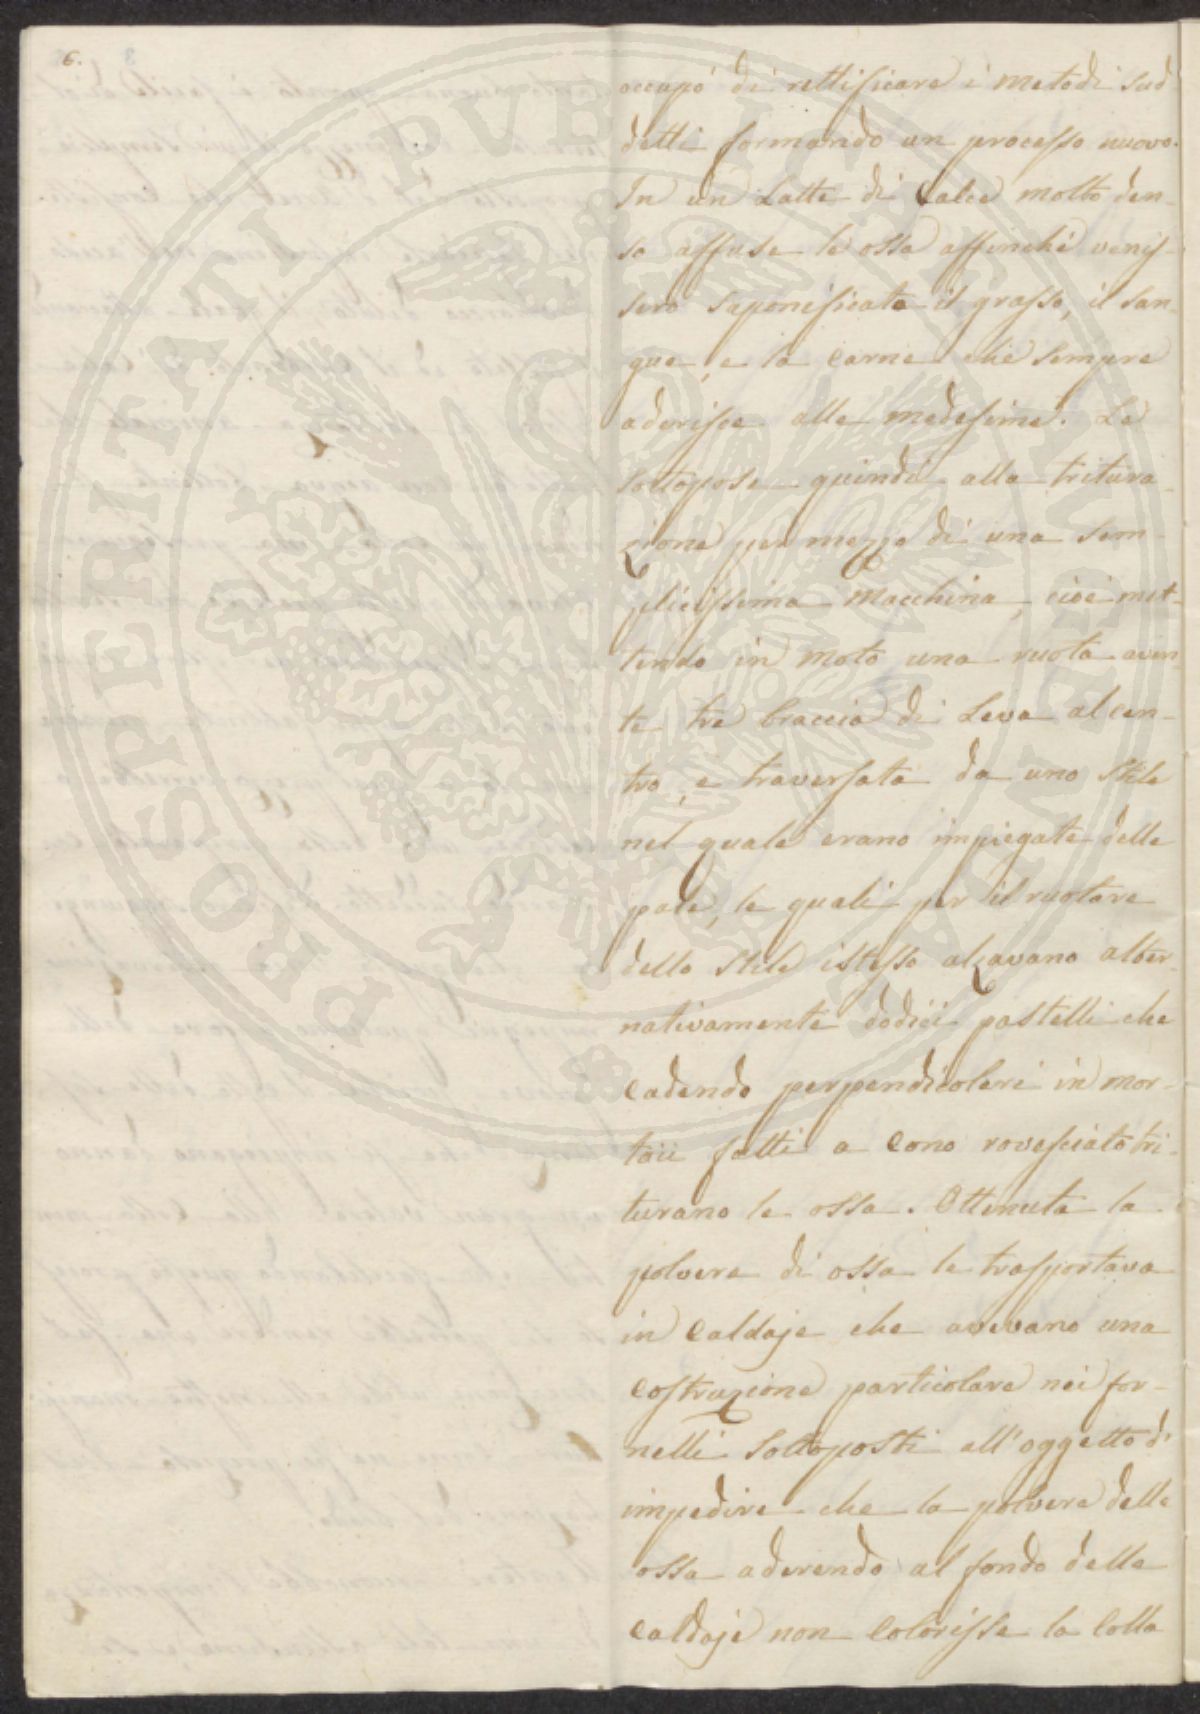 6.
occupò di rettificare i metodi sud
detti formando un processo nuovo.
In un Latte di Calce molto den-
so affuse le ossa affinchè venis-
sero saponificate il grasso, il san-
gue, e la carne che sempre
aderisce alle medesime. Le
sottopose quindi alla tritura-
zione per mezzo di una sem-
plicissima Macchina, cioè met-
tendo in moto una ruota aven-
te tre braccia di Leva al cen-
tro, e traversata da uno Stile
nel quale erano impiegate delle
pale, le quali per il ruotare
dello Stile istesso alzavano alter-
nativamente dodici pastelli che
cadendo perpendicolari in mor-
taii fatti a Cono rovesciato tri-
turano le ossa. Ottenuta la
polvere di ossa le trasportava
in Caldaje che avevano una
Costruzione particolare nei for-
nelli sottoposti all'oggetto d'
impedire che la polvere delle
ossa aderendo al fondo delle
Caldaje non Colorisse la Colla
PROSPERITATI PUBLICAE AUGENDAE